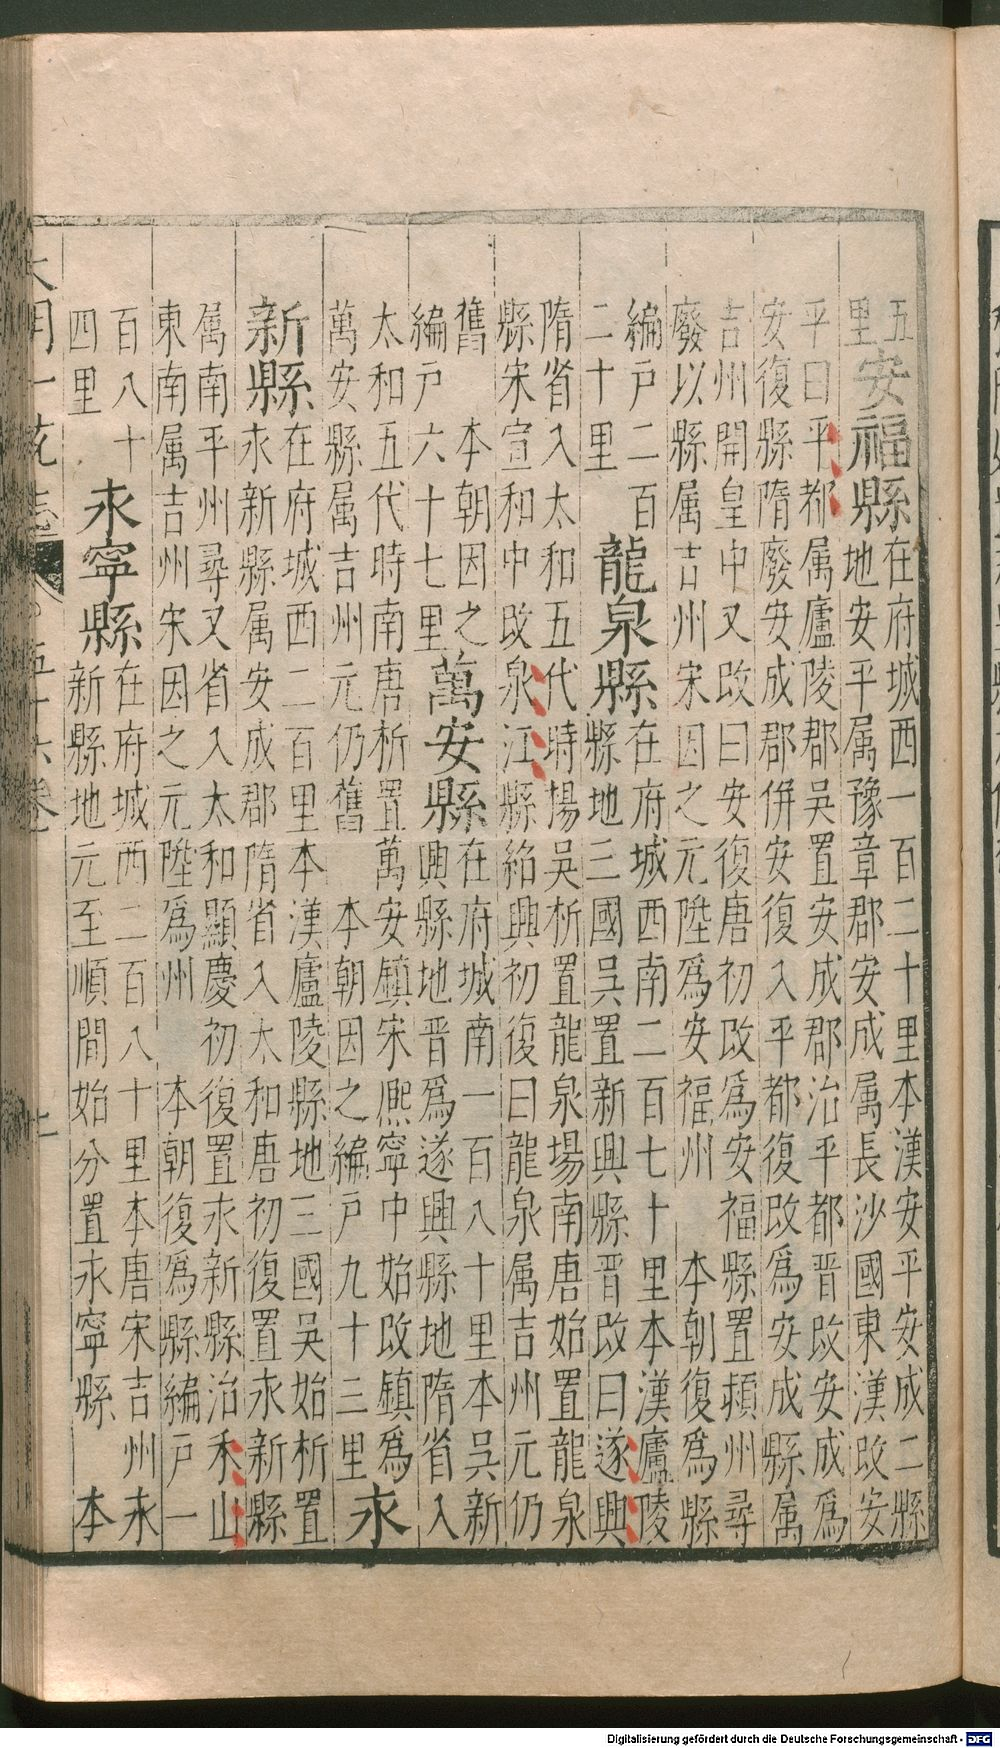 五里
安福縣
在府城西一百二十里本漢安平安成二縣
地安平属豫章郡安成属長沙國東漢改安
平曰平都属廬陵郡吳置安成郡治平都晉改安成爲
安復縣隋廢安成郡併安復入平都復改爲安成縣属
吉州開皇中又改曰安復唐初改爲安福縣置頴州尋
廢以縣属吉州宋因之元陞爲安福州 本朝復爲縣
編戶二百
二十里
龍泉縣
在府城西南二百七十里本漢廬陵
縣地三國吳置新興縣晉改曰遂興
隋省入太和五代時楊吳析置龍泉場南唐始置龍泉
縣宋宣和中改泉江縣紹興初復曰龍泉属吉州元仍
舊 本朝因之
編戶六十七里
萬安縣
在府城南一百八十里本吳新
興縣地晉爲遂興縣地隋省入
太和五代時南唐析置萬安鎮宋熈寧中始改鎮爲
萬安縣属吉州元仍舊 本朝因之編戶九十三里
永
新縣
在府城西二百里本漢廬陵縣地三國吳始析置
永新縣属安成郡隋省入太和唐初復置永新縣
属南平州尋又省入太和顯慶初復置永新縣治禾山
東南属吉州宋因之元陞爲州 本朝復爲縣編戶一
百八十
四里
永寧縣
在府城西二百八十里本唐宋吉州永
新縣地元至順間始分置永寧縣 本
大明一 志 五十六卷
Digitalisierung gefördert durch die Deutsche Forschungsgemeinschaft - DFG